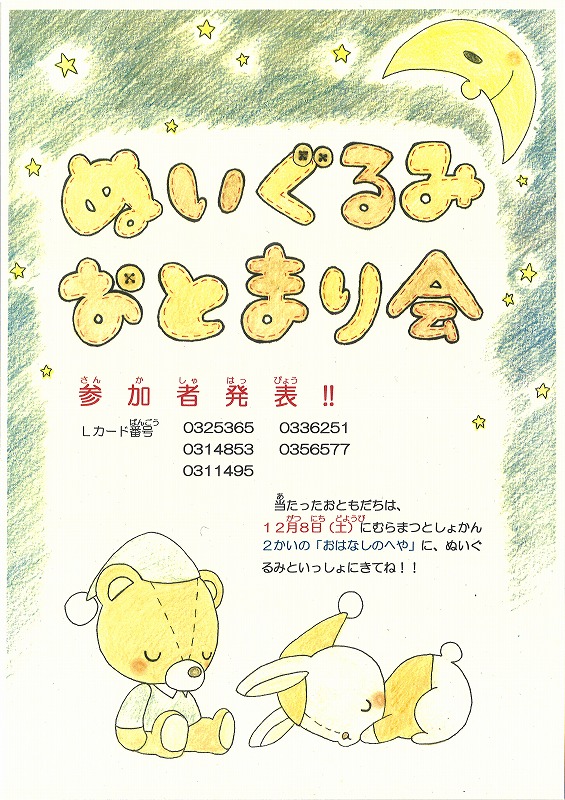 ぬいぐるみ
おとまり会
参加者発表!!
Lカード番号 0325365 0336251
0314853 0356577
0311495
当たったおともだちは、
12月8日(土)にむらまつとしょかん
2かいの「おはなしのへや」に、ぬいぐ
るみといっしょにきてね!!